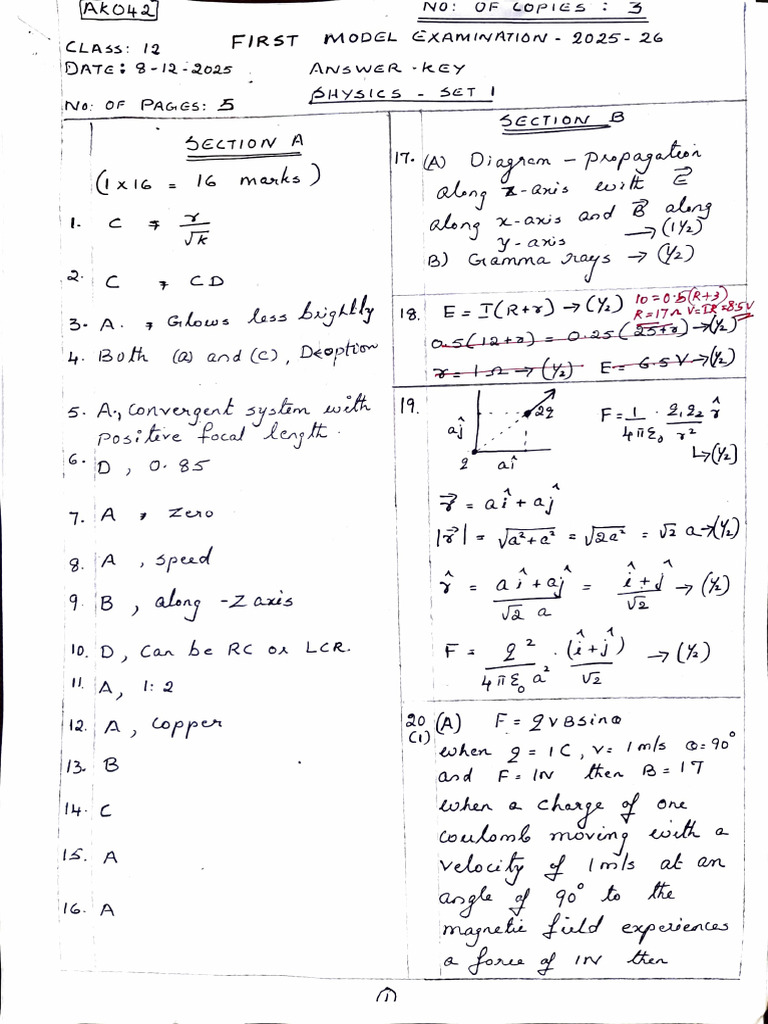 AK042
NO: OF COPIES : 3
CLASS: 12
FIRST MODEL EXAMINATION - 2025-26
DATE: 8-12-2025
ANSWER-KEY
NO: OF PAGES: 5
PHYSICS - SET 1
SECTION A
(1 x 16 = 16 marks)
1. C, r/√k
2. C, CD
3. A. , Glows less brightly
4. Both (a) and (c), D option
5. A., Convergent system with
positive focal length.
6. D, 0.85
7. A, Zero
8. A, speed
9. B, along -Z axis
10. D, Can be RC or LCR.
11. A, 1:2
12. A, copper
13. B
14. C
15. A
16. A
SECTION B
17. (A) Diagram - propagation
along z-axis with E⃗
along x-axis and B⃗ along
y-axis → (1½)
B) Gamma rays → (½)
18. E = I(R+r) → (½)
10 = 0.5(R+3)
R = 17Ω V=IR=8.5V
0.5(12+r) = 0.25(25+r) → (½)
r = 1Ω → (½) E = 6.5V → (½)
19. 2q
aĵ
q aî
F = 1/4πε₀ · q₁q₂/r² r̂
↳ (½)
r⃗ = aî + aĵ
|r⃗| = √a²+a² = √2a² = √2 a → (½)
r̂ = aî + aĵ/√2 a = î + ĵ/√2 → (½)
F = q²/4πε₀a² · (î+ĵ)/√2 → (½)
20 (A) F = qvBsinθ
(1)
when q = 1C, v = 1m/s θ = 90°
and F = 1N then B = 1T
when a charge of one
coulomb moving with a
velocity of 1m/s at an
angle of 90° to the
magnetic field experiences
a force of 1N then
1